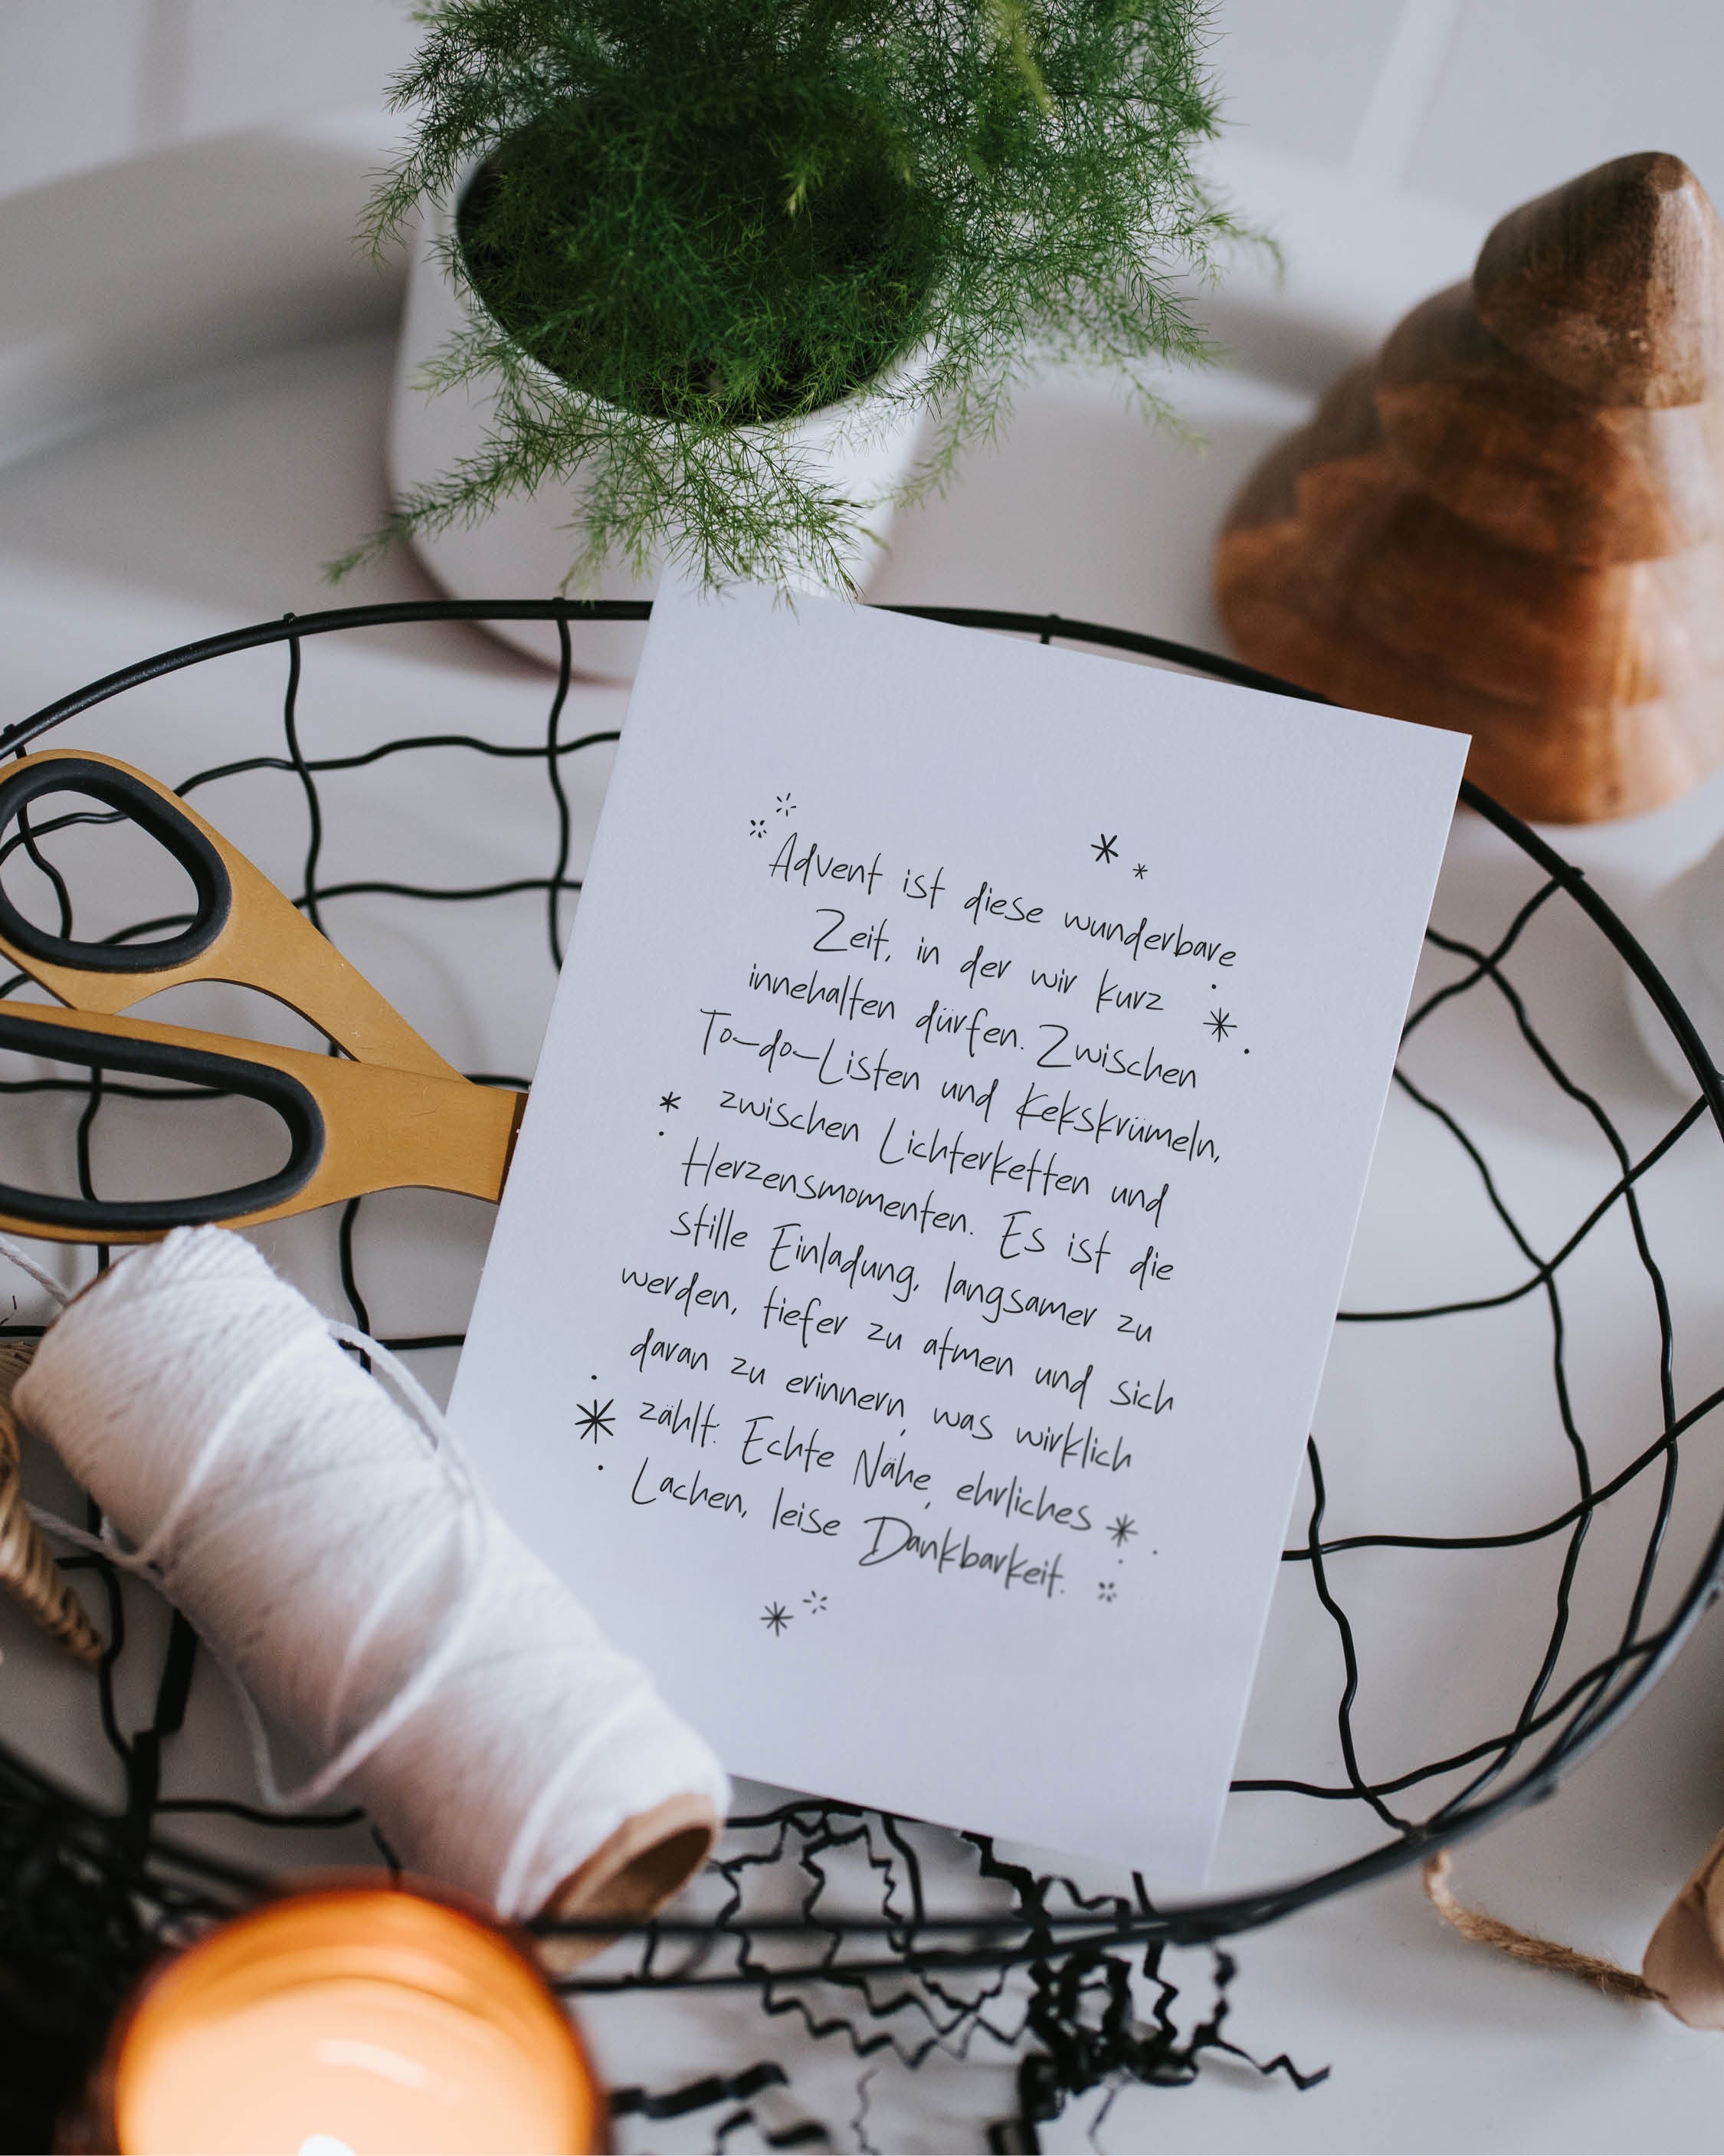 Advent ist diese wunderbare
Zeit, in der wir kurz
innehalten dürfen. Zwischen
To-do-Listen und Kekskrümeln,
zwischen Lichterketten und
Herzensmomenten. Es ist die
stille Einladung, langsamer zu
werden, tiefer zu atmen und sich
daran zu erinnern, was wirklich
zählt: Echte Nähe, ehrliches
Lachen, leise Dankbarkeit.